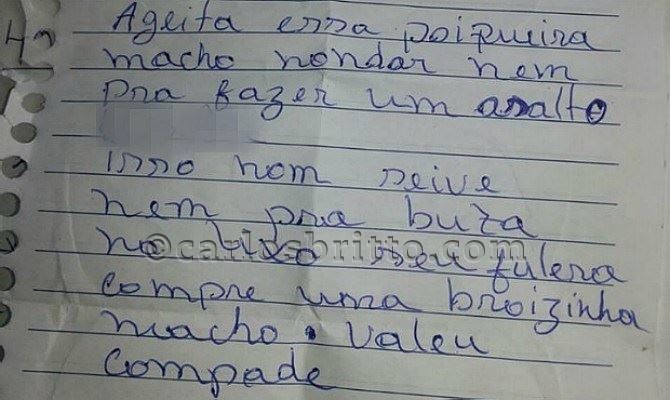 Ageita essa poipueira
macho nondar nem
pra fazer um asalto
isso nom seive
nem pra buta
no lixo seu fulera
@carlosbritto.com
compre uma broizinha
macho. Valeu
Compade